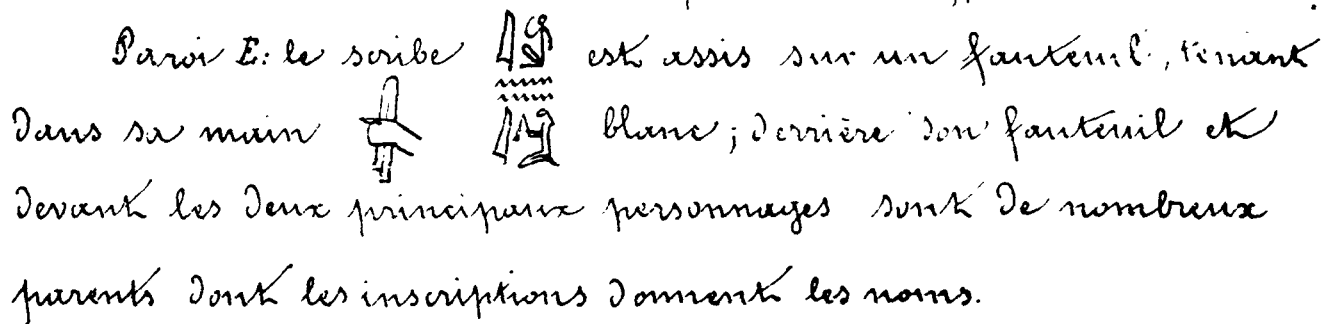 Paroi E: le scribe est assis sur un fauteuil, tenant
dans sa main blanc; derrière son fauteuil et
devant les deux principaux personnages sont de nombreux
parents dont les inscriptions donnent les noms.